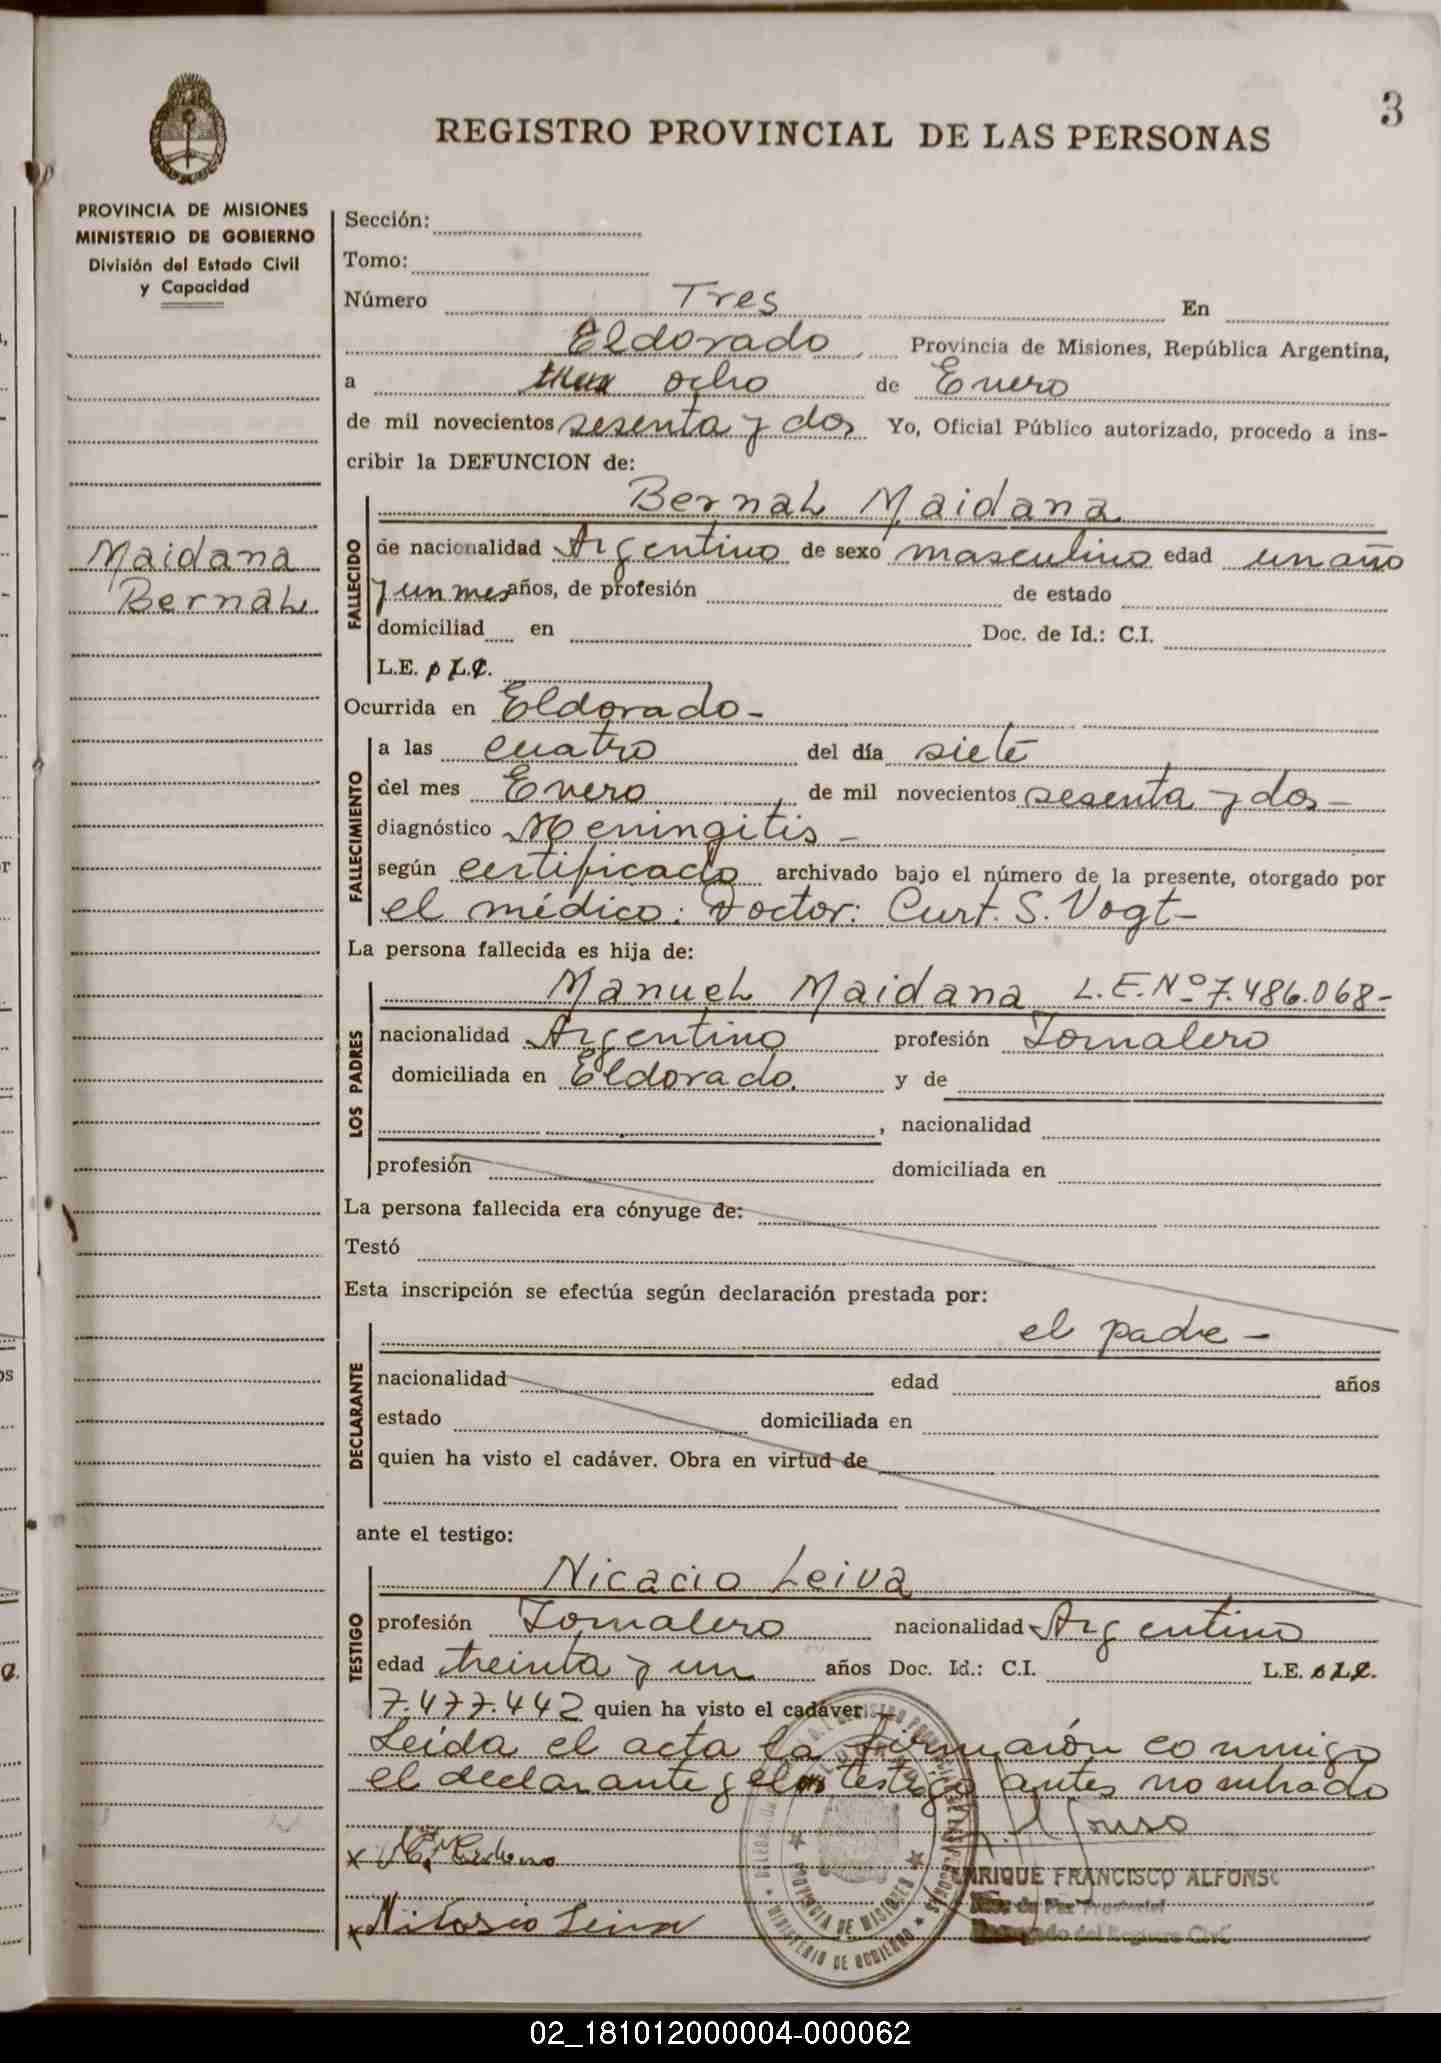 3
REGISTRO PROVINCIAL DE LAS PERSONAS
PROVINCIA DE MISIONES
MINISTERIO DE GOBIERNO
División del Estado Civil
y Capacidad
Maidana
Bernal
Sección:
Tomo:
Número Tres En
Eldorado, Provincia de Misiones, República Argentina,
a ocho de Enero
de mil novecientos sesenta y dos Yo, Oficial Público autorizado, procedo a ins-
cribir la DEFUNCION de:
FALLECIDO
Bernal Maidana
de nacionalidad Argentino de sexo masculino edad un año
y un mes años, de profesión de estado
domiciliad en Doc. de Id.: C.I.
L.E. o L.C.
Ocurrida en Eldorado-
FALLECIMIENTO
a las cuatro del día siete
del mes Enero, de mil novecientos sesenta y dos-
diagnóstico Meningitis-
según certificado archivado bajo el número de la presente, otorgado por
el médico: Doctor: Curt. S. Vogt-
La persona fallecida es hija de:
LOS PADRES
Manuel Maidana L.E.Nº 7.486.068-
nacionalidad Argentino profesión Jornalero
domiciliada en Eldorado. y de
, nacionalidad
profesión domiciliada en
La persona fallecida era cónyuge de:
Testó
Esta inscripción se efectúa según declaración prestada por:
DECLARANTE
el padre-
nacionalidad edad años
estado domiciliada en
quien ha visto el cadáver. Obra en virtud de
ante el testigo:
TESTIGO
Nicacio Leiva
profesión Jornalero nacionalidad Argentino
edad treinta y un años Doc. Id.: C.I. L.E. o L.C.
7.477.442 quien ha visto el cadáver.-
Leída el acta la firmarón conmigo
el declarante y el testigo antes nombrado
ENRIQUE FRANCISCO ALFONSO
Juez de Paz Provincial
Encargado del Registro Civil
PROVINCIA DE MISIONES
MINISTERIO DE GOBIERNO
02_181012000004-000062